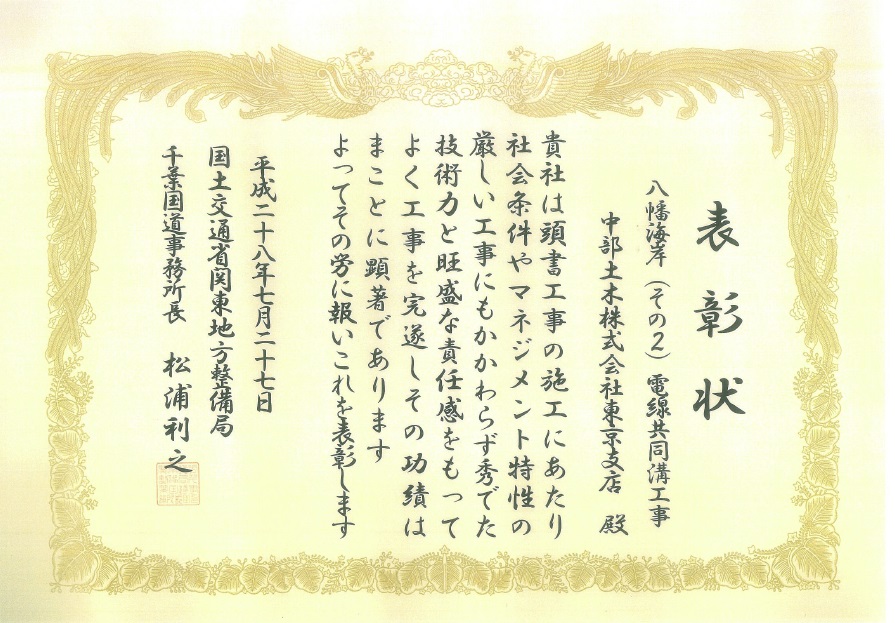 表彰状
八幡海岸（その2）電線共同溝工事
中部土木株式会社東京支店 殿
貴社は頭書工事の施工にあたり
社会条件やマネジメント特性の
厳しい工事にもかかわらず秀でた
技術力と旺盛な責任感をもって
よく工事を完遂しその功績は
まことに顕著であります
よってその労に報いこれを表彰します
平成二十八年七月二十七日
国土交通省関東地方整備局
千葉国道事務所長 松浦利之